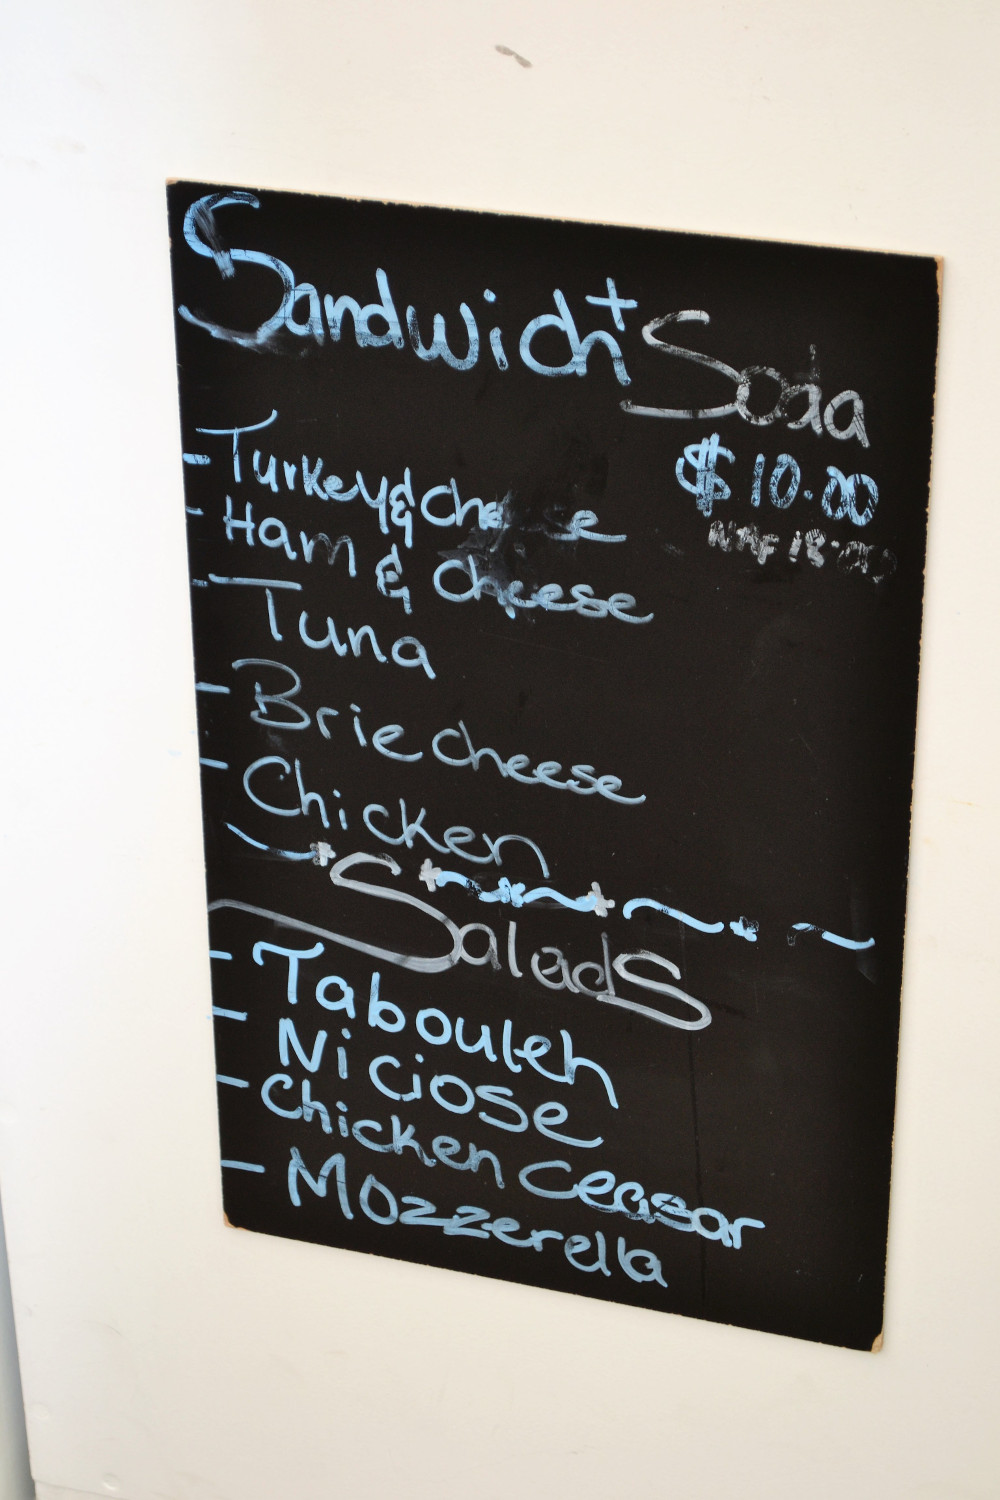 Sandwich + Soda
$10.00
NAF 18.00
- Turkey & Cheese
- Ham & Cheese
- Tuna
- Brie cheese
- Chicken
Salads
- Tabouleh
- Niciose
- Chicken Ceasar
- Mozzerella